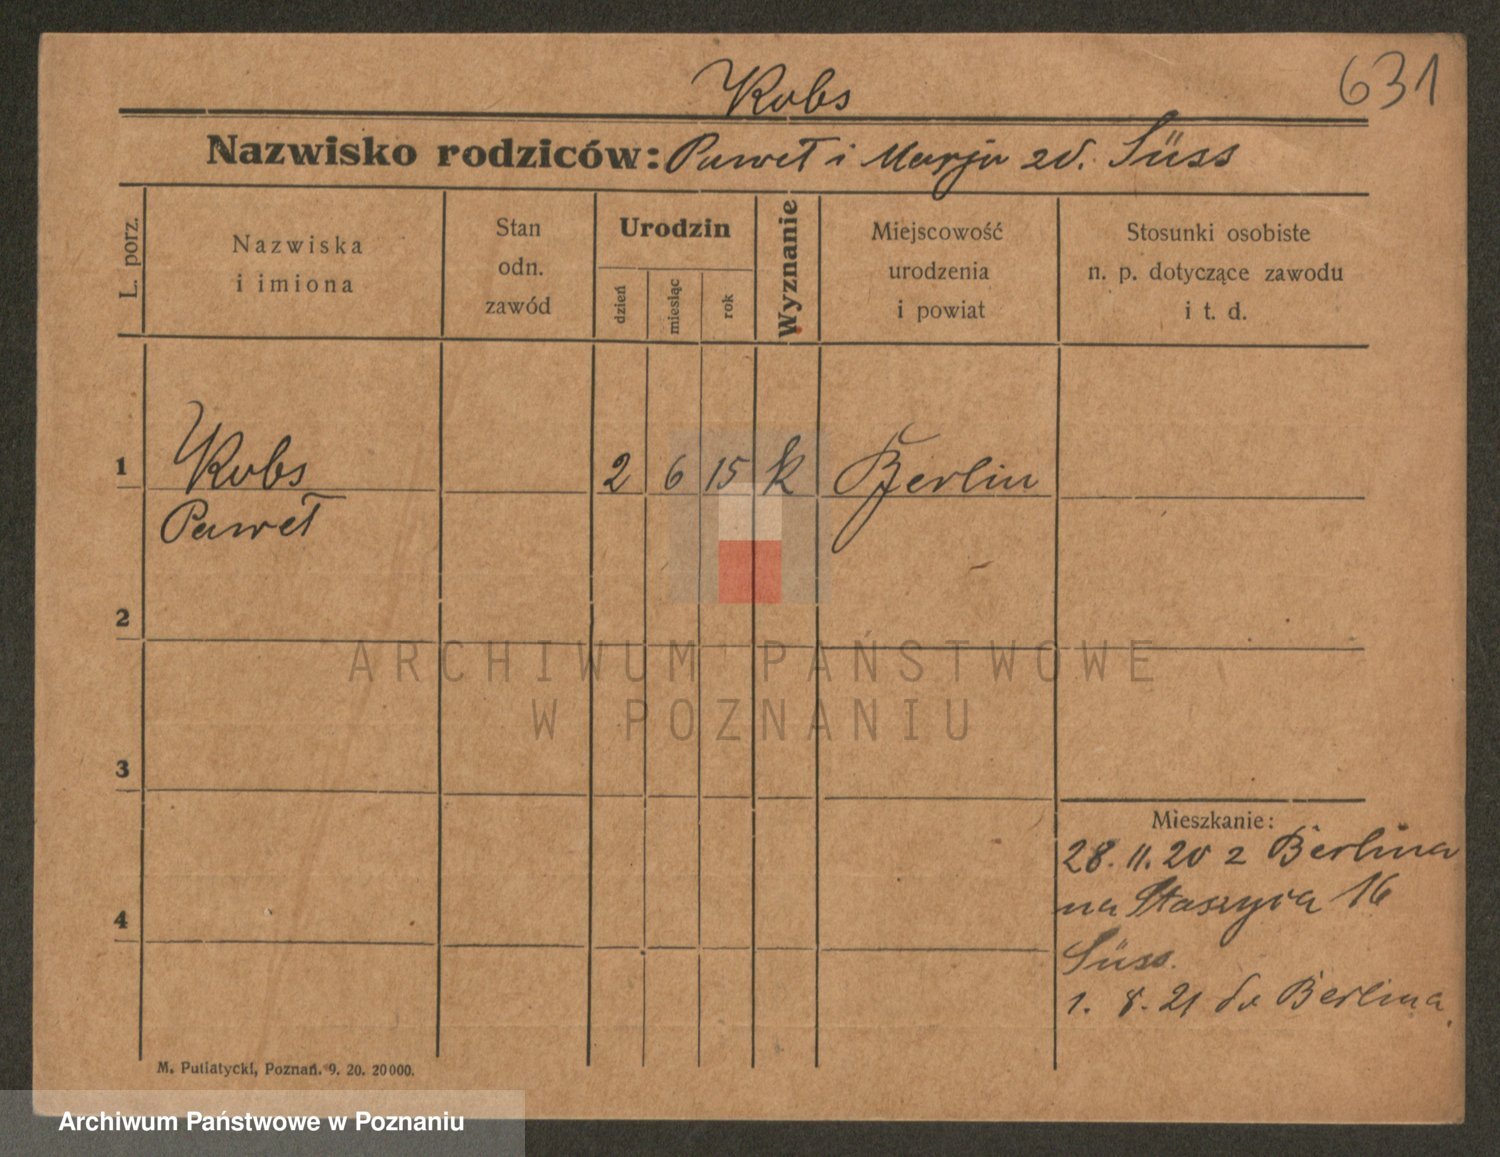 631
Kobs
Nazwisko rodziców: Paweł i Marja zd. Süss
L. porz.
Nazwiska
i imiona
Stan
odn.
zawód
Urodzin
dzień
miesiąc
rok
Wyznanie
Miejscowość
urodzenia
i powiat
Stosunki osobiste
n. p. dotyczące zawodu
i t. d.
1 Kobs 2 6 15 k Berlin
Paweł
2
ARCHIWUM PAŃSTWOWE
W POZNANIU
3
Mieszkanie:
28. 11. 20 z Berlina
na Staszyca 16
4
Süss.
1. 8. 21 do Berlina.
M. Putiatycki, Poznań. 9. 20. 20000.
Archiwum Państwowe w Poznaniu